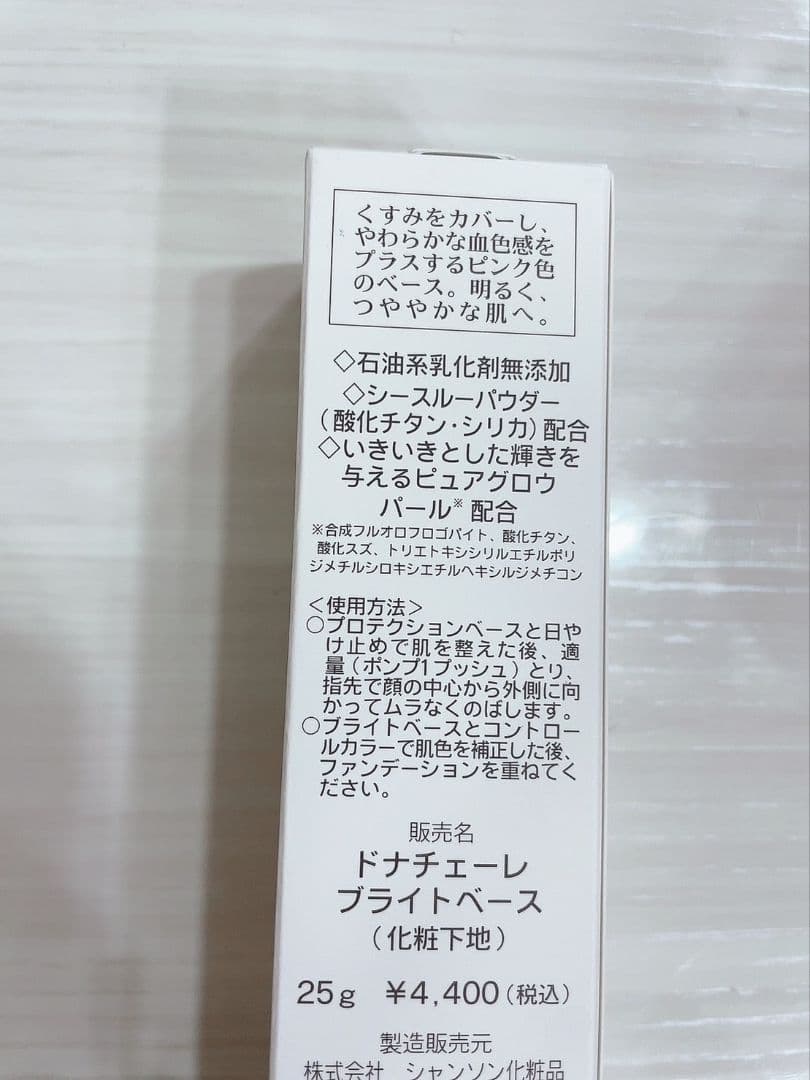 くすみをカバーし、
やわらかな血色感を
プラスするピンク色
のベース。明るく、
つややかな肌へ。
◇石油系乳化剤無添加
◇シースルーパウダー
（酸化チタン・シリカ）配合
◇いきいきとした輝きを
与えるピュアグロウ
パール※ 配合
※合成フルオロフロゴパイト、酸化チタン、
酸化スズ、トリエトキシシリルエチルポリ
ジメチルシロキシエチルヘキシルジメチコン
＜使用方法＞
○プロテクションベースと日や
け止めで肌を整えた後、適
量（ポンプ1プッシュ）とり、
指先で顔の中心から外側に向
かってムラなくのばします。
○ブライトベースとコントロー
ルカラーで肌色を補正した後、
ファンデーションを重ねてく
ださい。
販売名
ドナチェーレ
ブライトベース
（化粧下地）
25g ¥4,400（税込）
製造販売元
株式会社 シャンソン化粧品